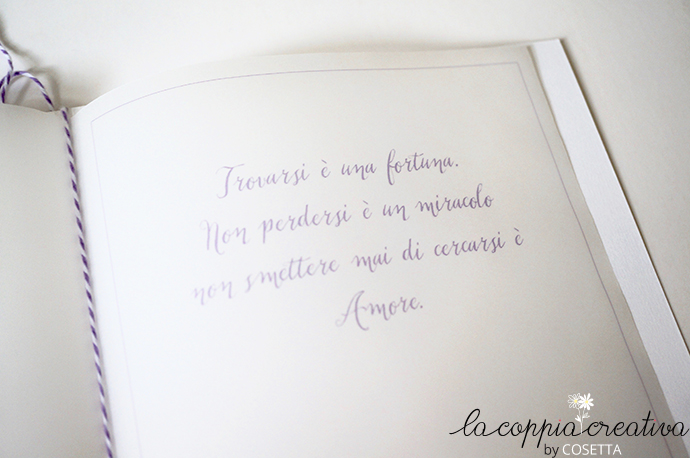 Trovarsi è una fortuna.
Non perdersi è un miracolo
non smettere mai di cercarsi è
Amore.
la coppia creativa
by COSETTA